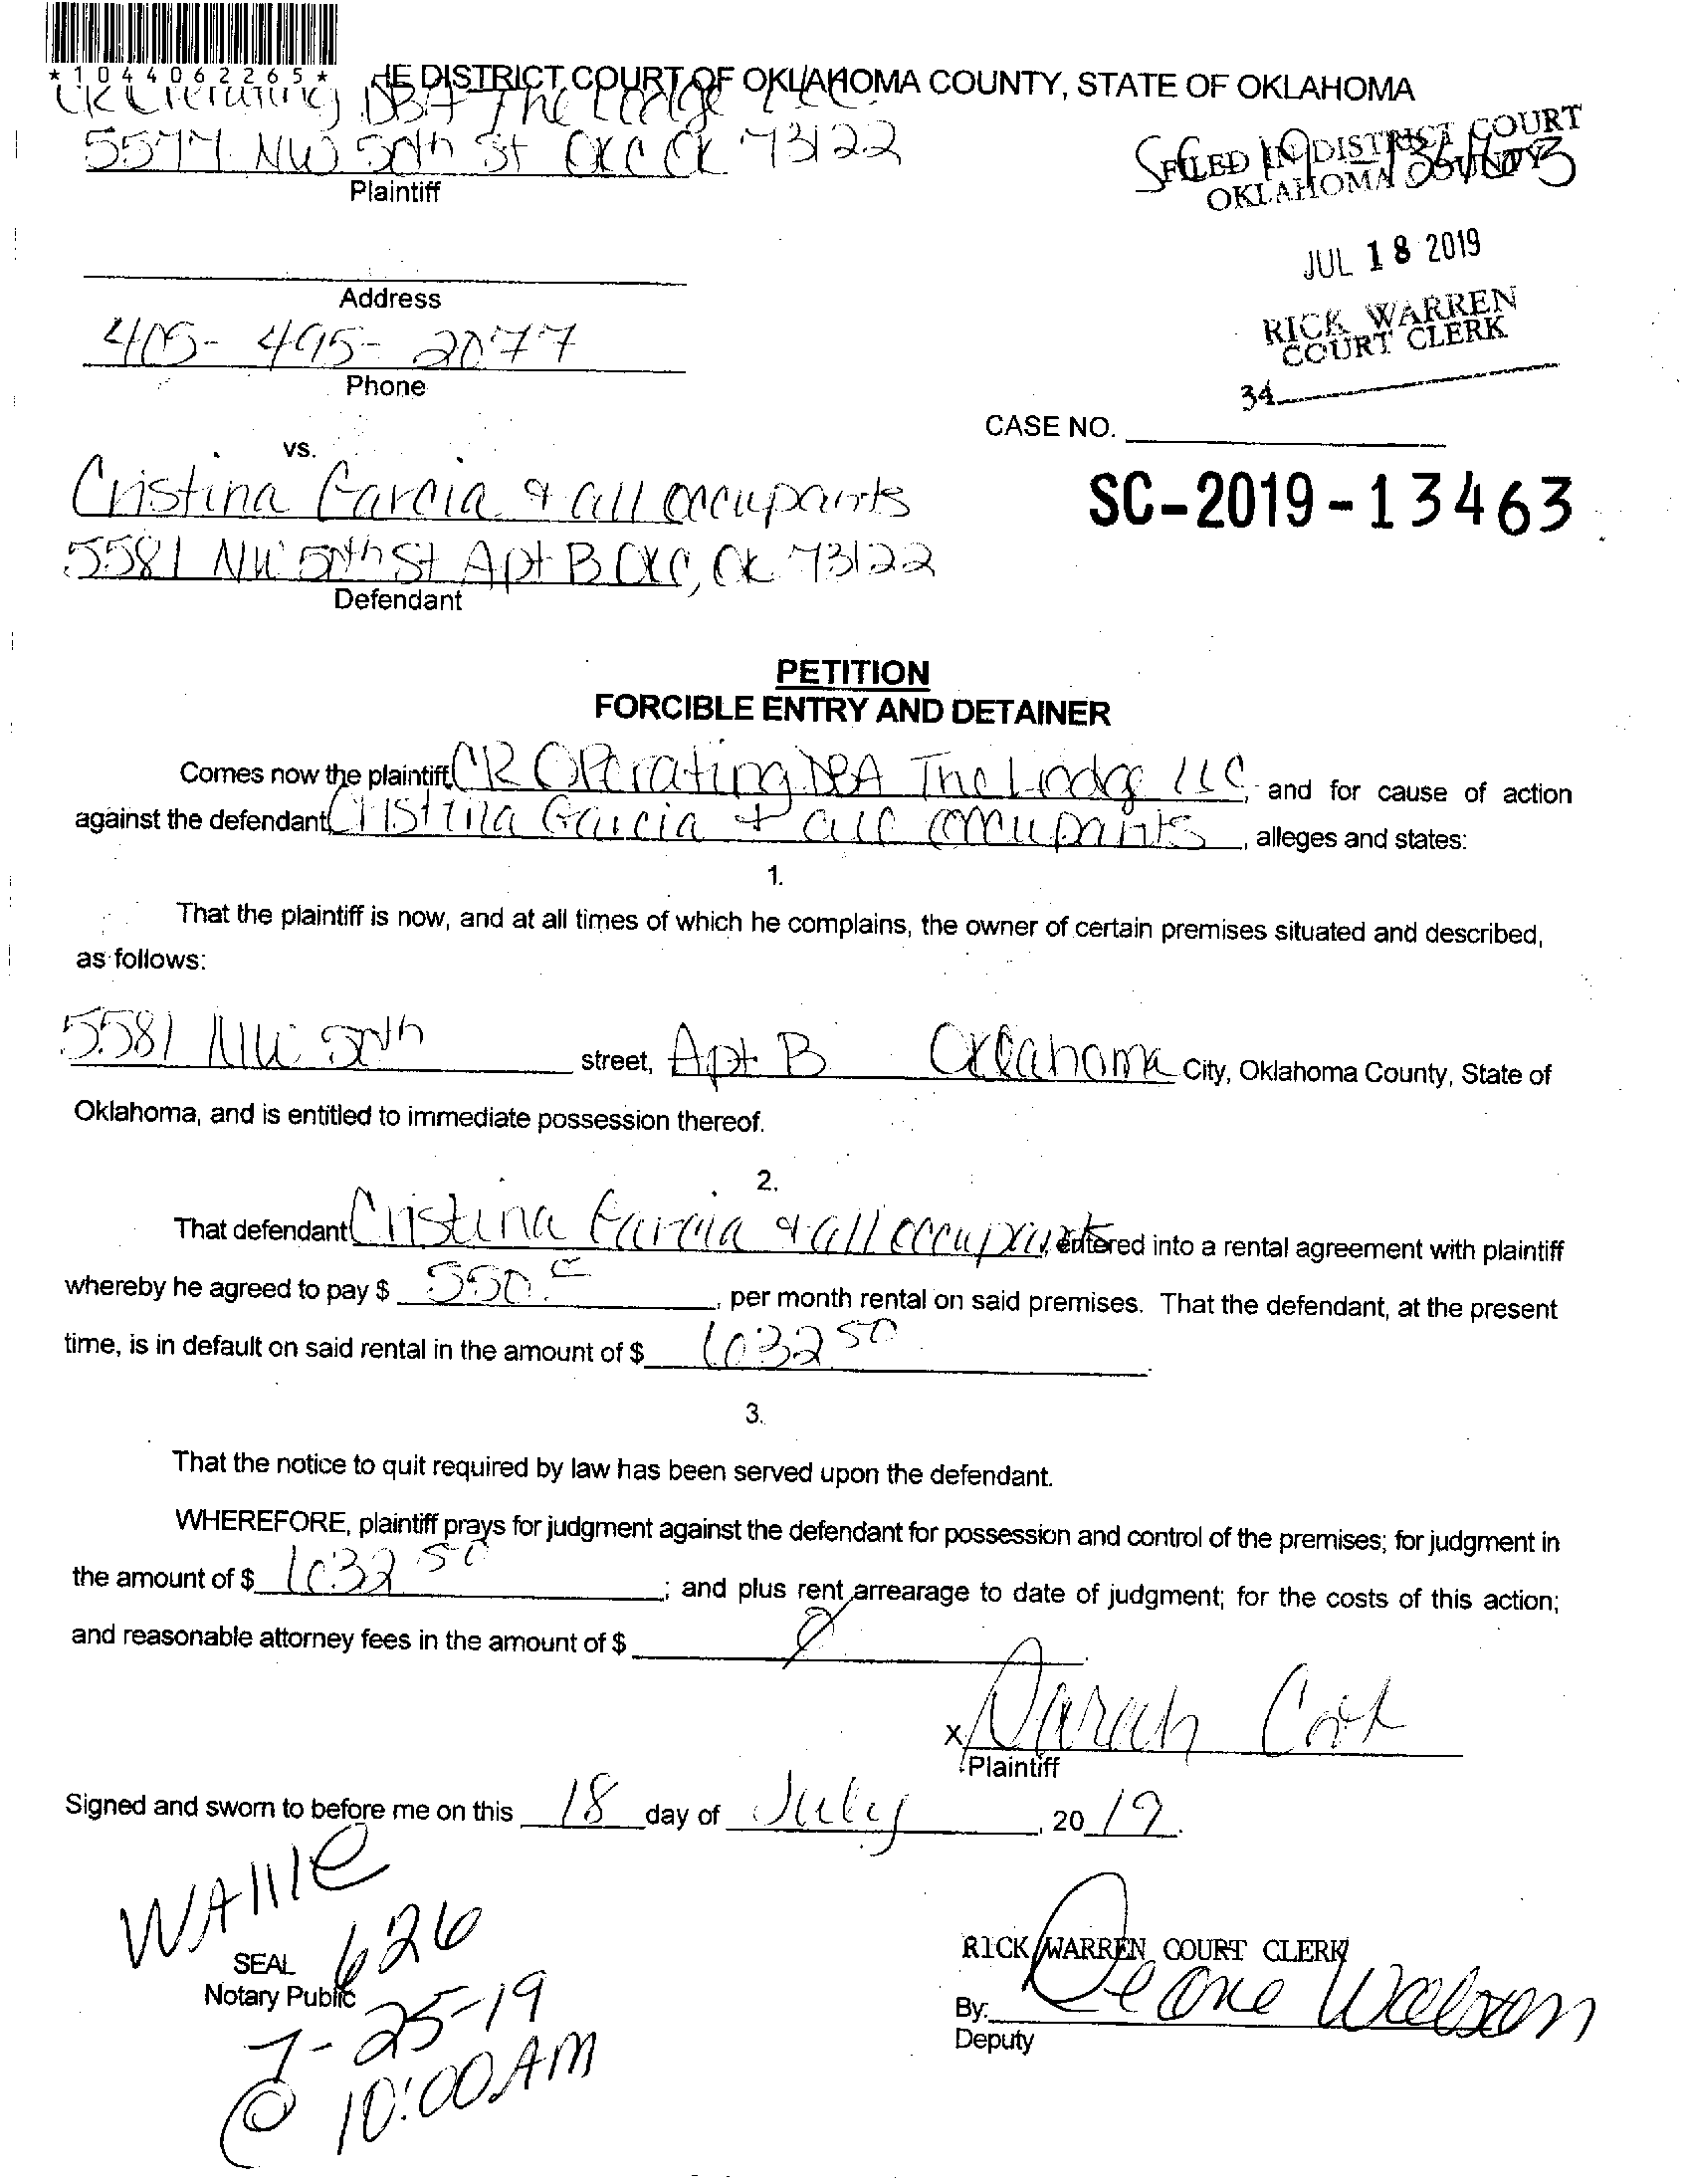 *1044062265*
HE DISTRICT COURT OF OKLAHOMA COUNTY, STATE OF OKLAHOMA
CR Operating DBA The Lodge LLC.
5577 NW 50th St OKC OK 73122
Plaintiff
SC 19 13463
FILED IN DISTRICT COURT
OKLAHOMA COUNTY
JUL 18 2019
RICK WARREN
COURT CLERK
34
Address
405-495-2077
Phone
CASE NO.
vs.
Cristina Garcia & all occupants
SC-2019-13463
5581 NW 50th St Apt B OKC, OK 73122
Defendant
PETITION
FORCIBLE ENTRY AND DETAINER
Comes now the plaintiff, CR Operating DBA The Lodge LLC, and for cause of action
against the defendant Cristina Garcia + all occupants, alleges and states:
1.
That the plaintiff is now, and at all times of which he complains, the owner of certain premises situated and described,
as follows:
5581 NW 50th street, Apt B Oklahoma City, Oklahoma County, State of
Oklahoma, and is entitled to immediate possession thereof.
2.
That defendant Cristina Garcia & all occupants, entered into a rental agreement with plaintiff
whereby he agreed to pay $ 550.00, per month rental on said premises. That the defendant, at the present
time, is in default on said rental in the amount of $ 632 50
3.
That the notice to quit required by law has been served upon the defendant.
WHEREFORE, plaintiff prays for judgment against the defendant for possession and control of the premises; for judgment in
the amount of $ 632 50; and plus rent arrearage to date of judgment; for the costs of this action;
and reasonable attorney fees in the amount of $
X Sarah
Plaintiff
Signed and sworn to before me on this 18 day of July, 20 19.
WAllie
626
SEAL
Notary Public
7-25-19
@ 10:00 AM
RICK WARREN COURT CLERK
By:
Deputy